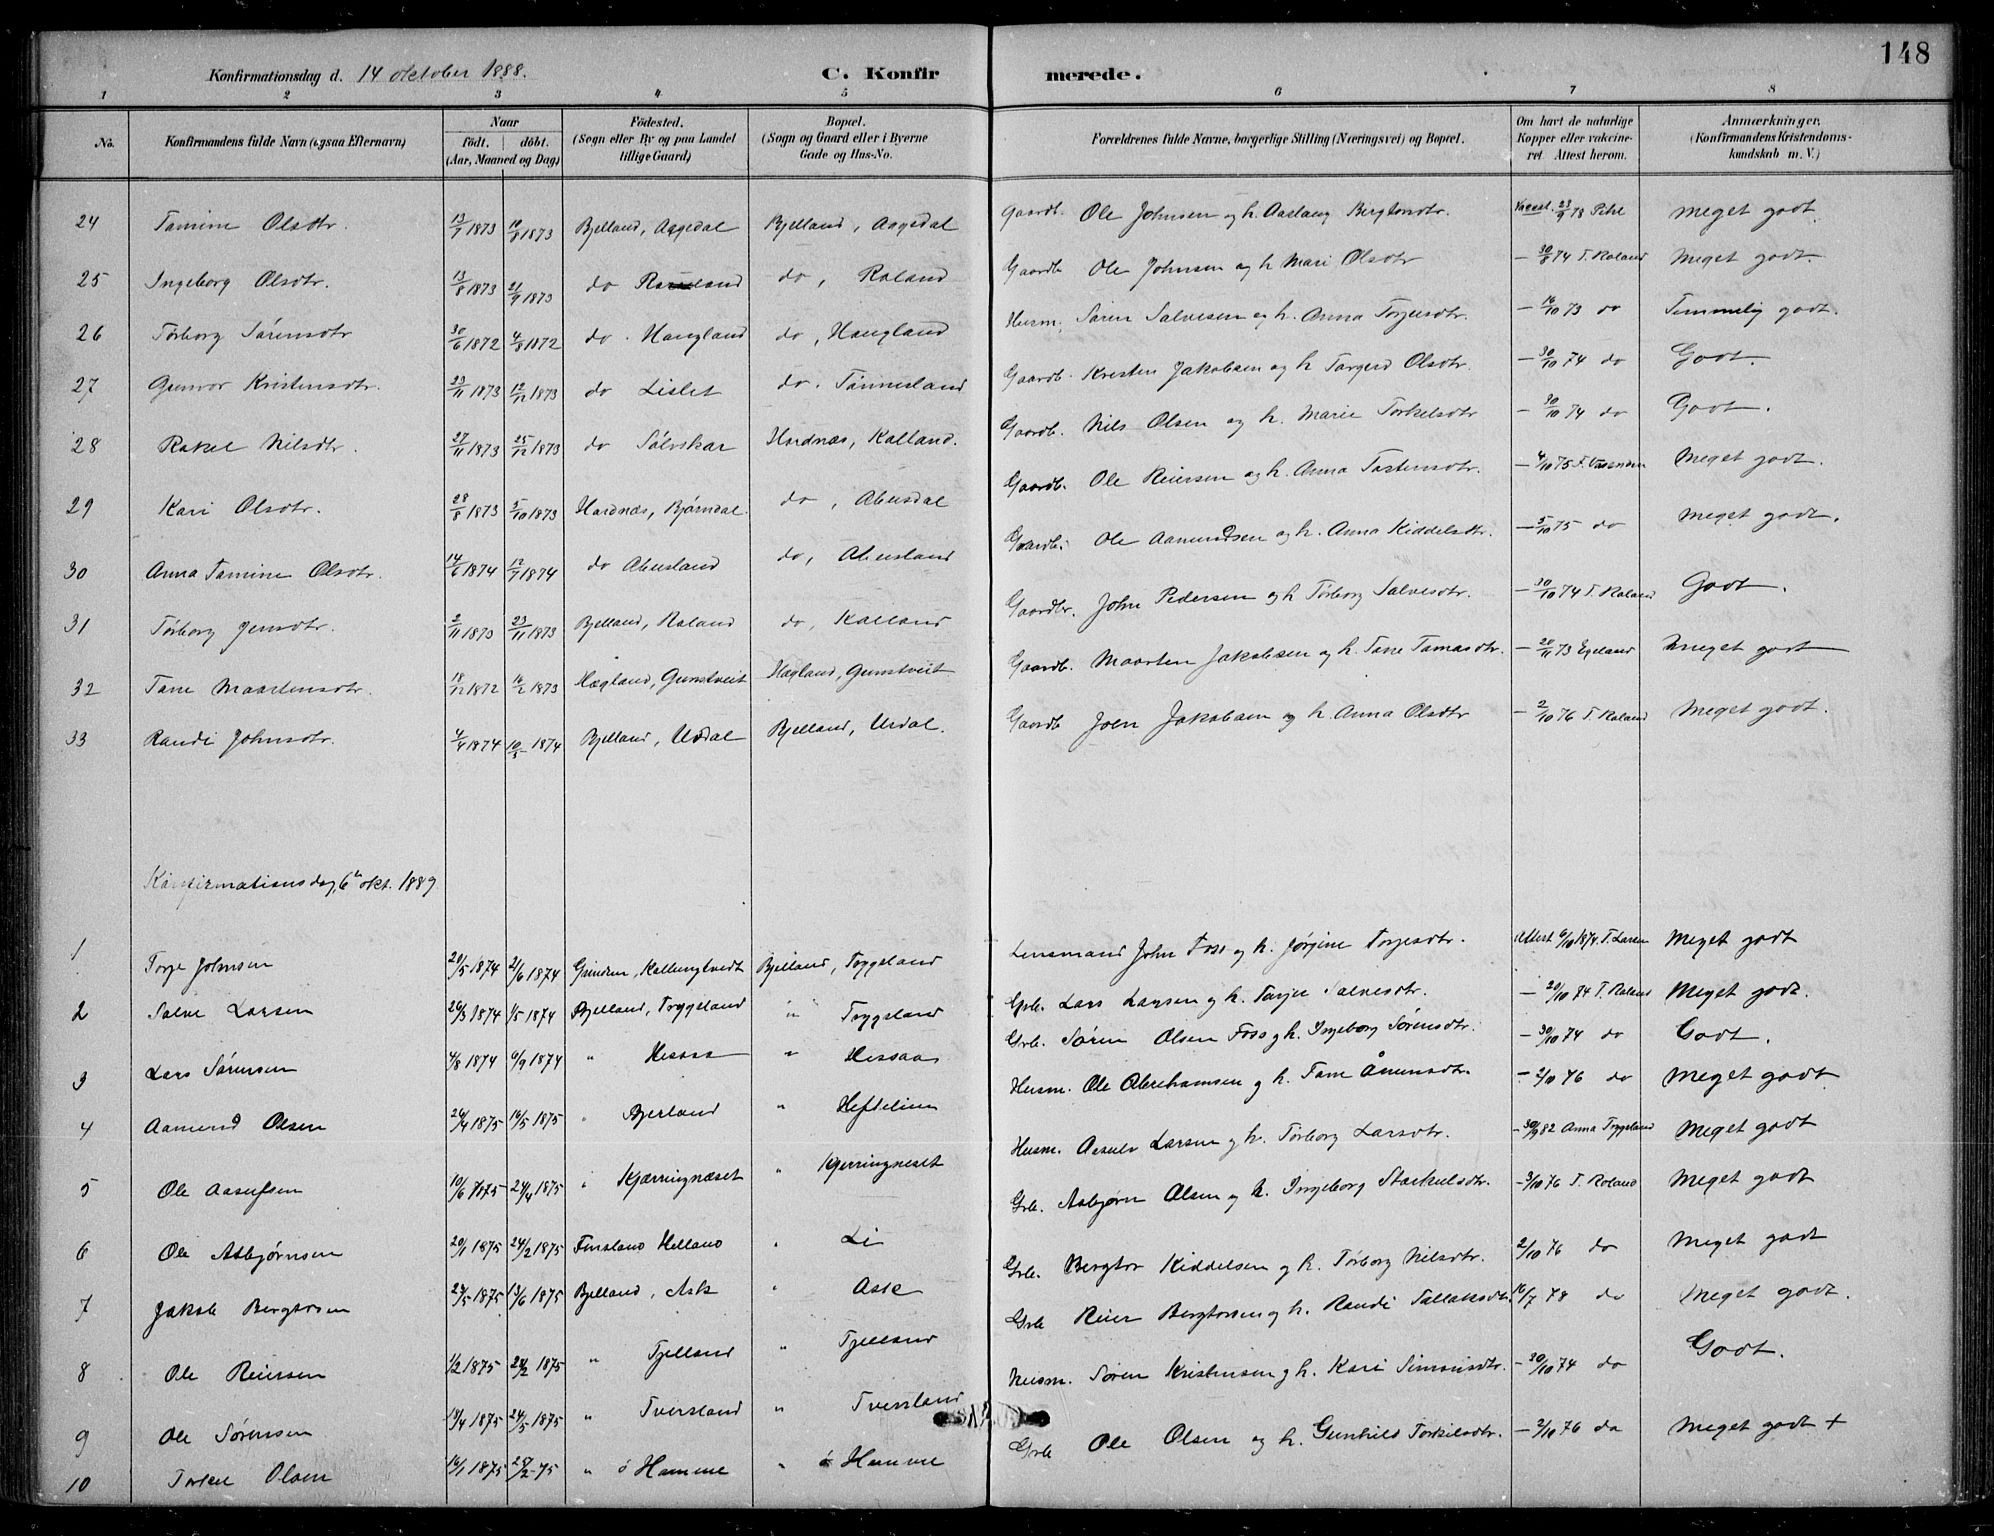 148
Konfirmationsdag d. 14 oktober 1888. C. Konfir merede.
1 2 3 4 5 6 7 8
No. Konfirmandens fulde Navn (ogsaa Efternavn) Naar født. døbt. (Aar, Maaned og Dag) Fødested. (Sogn eller By og paa Landet tillige Gaard) Bopæl. (Sogn og Gaard eller i Byerne Gade og Hus-No. Forældrenes fulde Navne, borgerlige Stilling (Næringsvei) og Bopæl. Om havt de naturlige Kopper eller vakcineret Attest herom. Anmærkninger. (Konfirmandens Kristendomskundskab m. V.)
24 Tamine Olsdtr. 13/7 1873 10/8 1873 Bjelland, Aagedal Bjelland, Aagedal Gaardb. Ole Johnsen og h. Aaslaug Bergtorsdtr. 23/9 78 meget godt.
25 Ingeborg Olsdtr. 13/8 1873 21/9 1873 do Roland do, Roland Gaardb Ole Johnsen og h Mari Olsdtr — 30/8 74 T. Roland Meget godt.
26 Tørborg Sørensdtr 30/6 1872 4/8 1872 do. Haugland do, Haugland Husm. Søren Salvesen og h. Anna Torjusdtr. — 16/10 73 do Temmelig godt.
27 Gunvor Kristensdtr. 23/11 1873 12/12 1873 do Lislet do. Tønnesland Gaardb. Kristen Jakobsen og h Torgerd Olsdtr. — 30/10 74 do Godt.
28 Rakel Nilsdtr. 27/11 1873 25/12 1873 do Sølvskar Hordnæs, Kolland. Gaardb. Nils Olsen og h. Marie Torkelsdtr — 30/10 74 do Godt.
29 Kari Olsdtr. 28/8 1873 5/10 1873 Hordnæs, Bjørndal. do, Abusdal Gaardb. Ole Reiersen og h. Anna Tostensdtr. — 4/10 75 Meget godt.
30 Anna Tamine Olsdtr. 14/6 1874 12/7 1874 do Abusland do, Abusland Gaardb. Ole Aamundsen og h. Anna Kiddelsdtr. — 5/10 75 do Meget godt.
31 Tørborg Jensdtr. 2/11 1873 23/11 1873 Bjelland, Roland do, Kolland Gaardbr. John Pedersen og h Tørborg Salvesdtr. — 30/10 74 T. Roland Godt.
32 Tane Maartensdtr. 18/12 1872 16/2 1873 Hægland, Gunstveit Hægland, Gunstveit Gaardb. Maarten Jakobsen og h. Tane Tamasdtr. — 20/11 73 Egeland meget godt
33 Randi Johnsdtr. 4/4 1874 10/5 1874 Bjelland, Usdal Bjelland, Usdal. Gaardb Joen Jakobsen og h. Anna Olsdtr — 2/10 76 T. Roland Meget godt.
Konfirmationsdag, 6te okt. 1889.
1 Torje Johnsen 20/5 1874 21/6 1874 Grindem, Bjelland, Tryggsland Lensmand John Foss og h. Jørgine Torjesdtr. Attest 6/10 1874. T. Larsen Meget godt
2 Salve Larsen 26/3 1874 1/5 1874 Bjelland, Tryggsland " Tryggsland Grb. Lars Larsen og h. Torjer Salvesdtr. — 20/10 74 T. Roland Meget godt.
3 Lars Sørensen 4/8 1874 6/9 1874 " Hesaaa " Hessaa Grb. Søren Olsen Foss og h. Ingeborg Sørensdtr. — 30/10 74 do Godt.
4 Aamund Olsen 26/4 1875 16/5 1875 " Bjerland " Heftelien Husm. Ole Abrahamsen og h. Tane Ånensdtr. — 2/10 76 do Meget godt
5 Ole Aasufsen 10/6 1875 24/4 1875 " Kjærringnæset " Kjerringneset Husm. Aasulv Larsen og h. Tørborg Larsdtr. — 30/9 82 Anna Tryggsland Meget godt
6 Ole Asbjørnsen 20/1 1875 24/2 1875 Finsland Helland " Li Grb. Asbjørn Olsen og h. Ingeborg Starkulsdtr. — 3/10 76 T. Roland Meget godt
7 Jakob Bergtorsen 23/5 1875 13/6 1875 Bjelland, Ask " Ask Grb. Bergtor Kiddelsen og h. Tørborg Nilsdtr. 2/10 76 do Meget godt
8 Ole Reiersen 1/2 1875 28/2 1875 " Tjelland " Tjelland Grb Reier Bergtorsen og h. Randi Tallaksdtr. 16/7 78 do Meget godt.
9 Ole Sørensen 18/4 1875 24/5 1875 " Tversland " Tversland Husm. Søren Kristensen og h. Kari Simonsdtr. — 30/10 74 do Godt.
10 Torkel Olsen 16/1 1875 28/2 75 " ö Homme " ö Homme Grb Ole Olsen og h. Gunhild Torkilsdtr. — 2/10 76 do Meget godt +